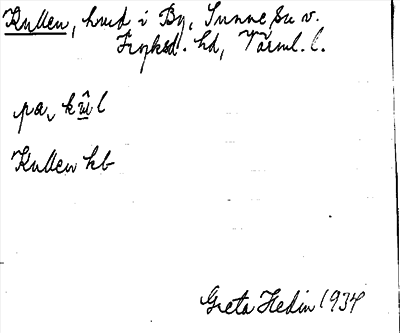 Kullen, hmd i By, Sunne sn v.
Fryksd. hd, Värml. l.
pa, kûl
Kullen kb
Greta Hedin 1934